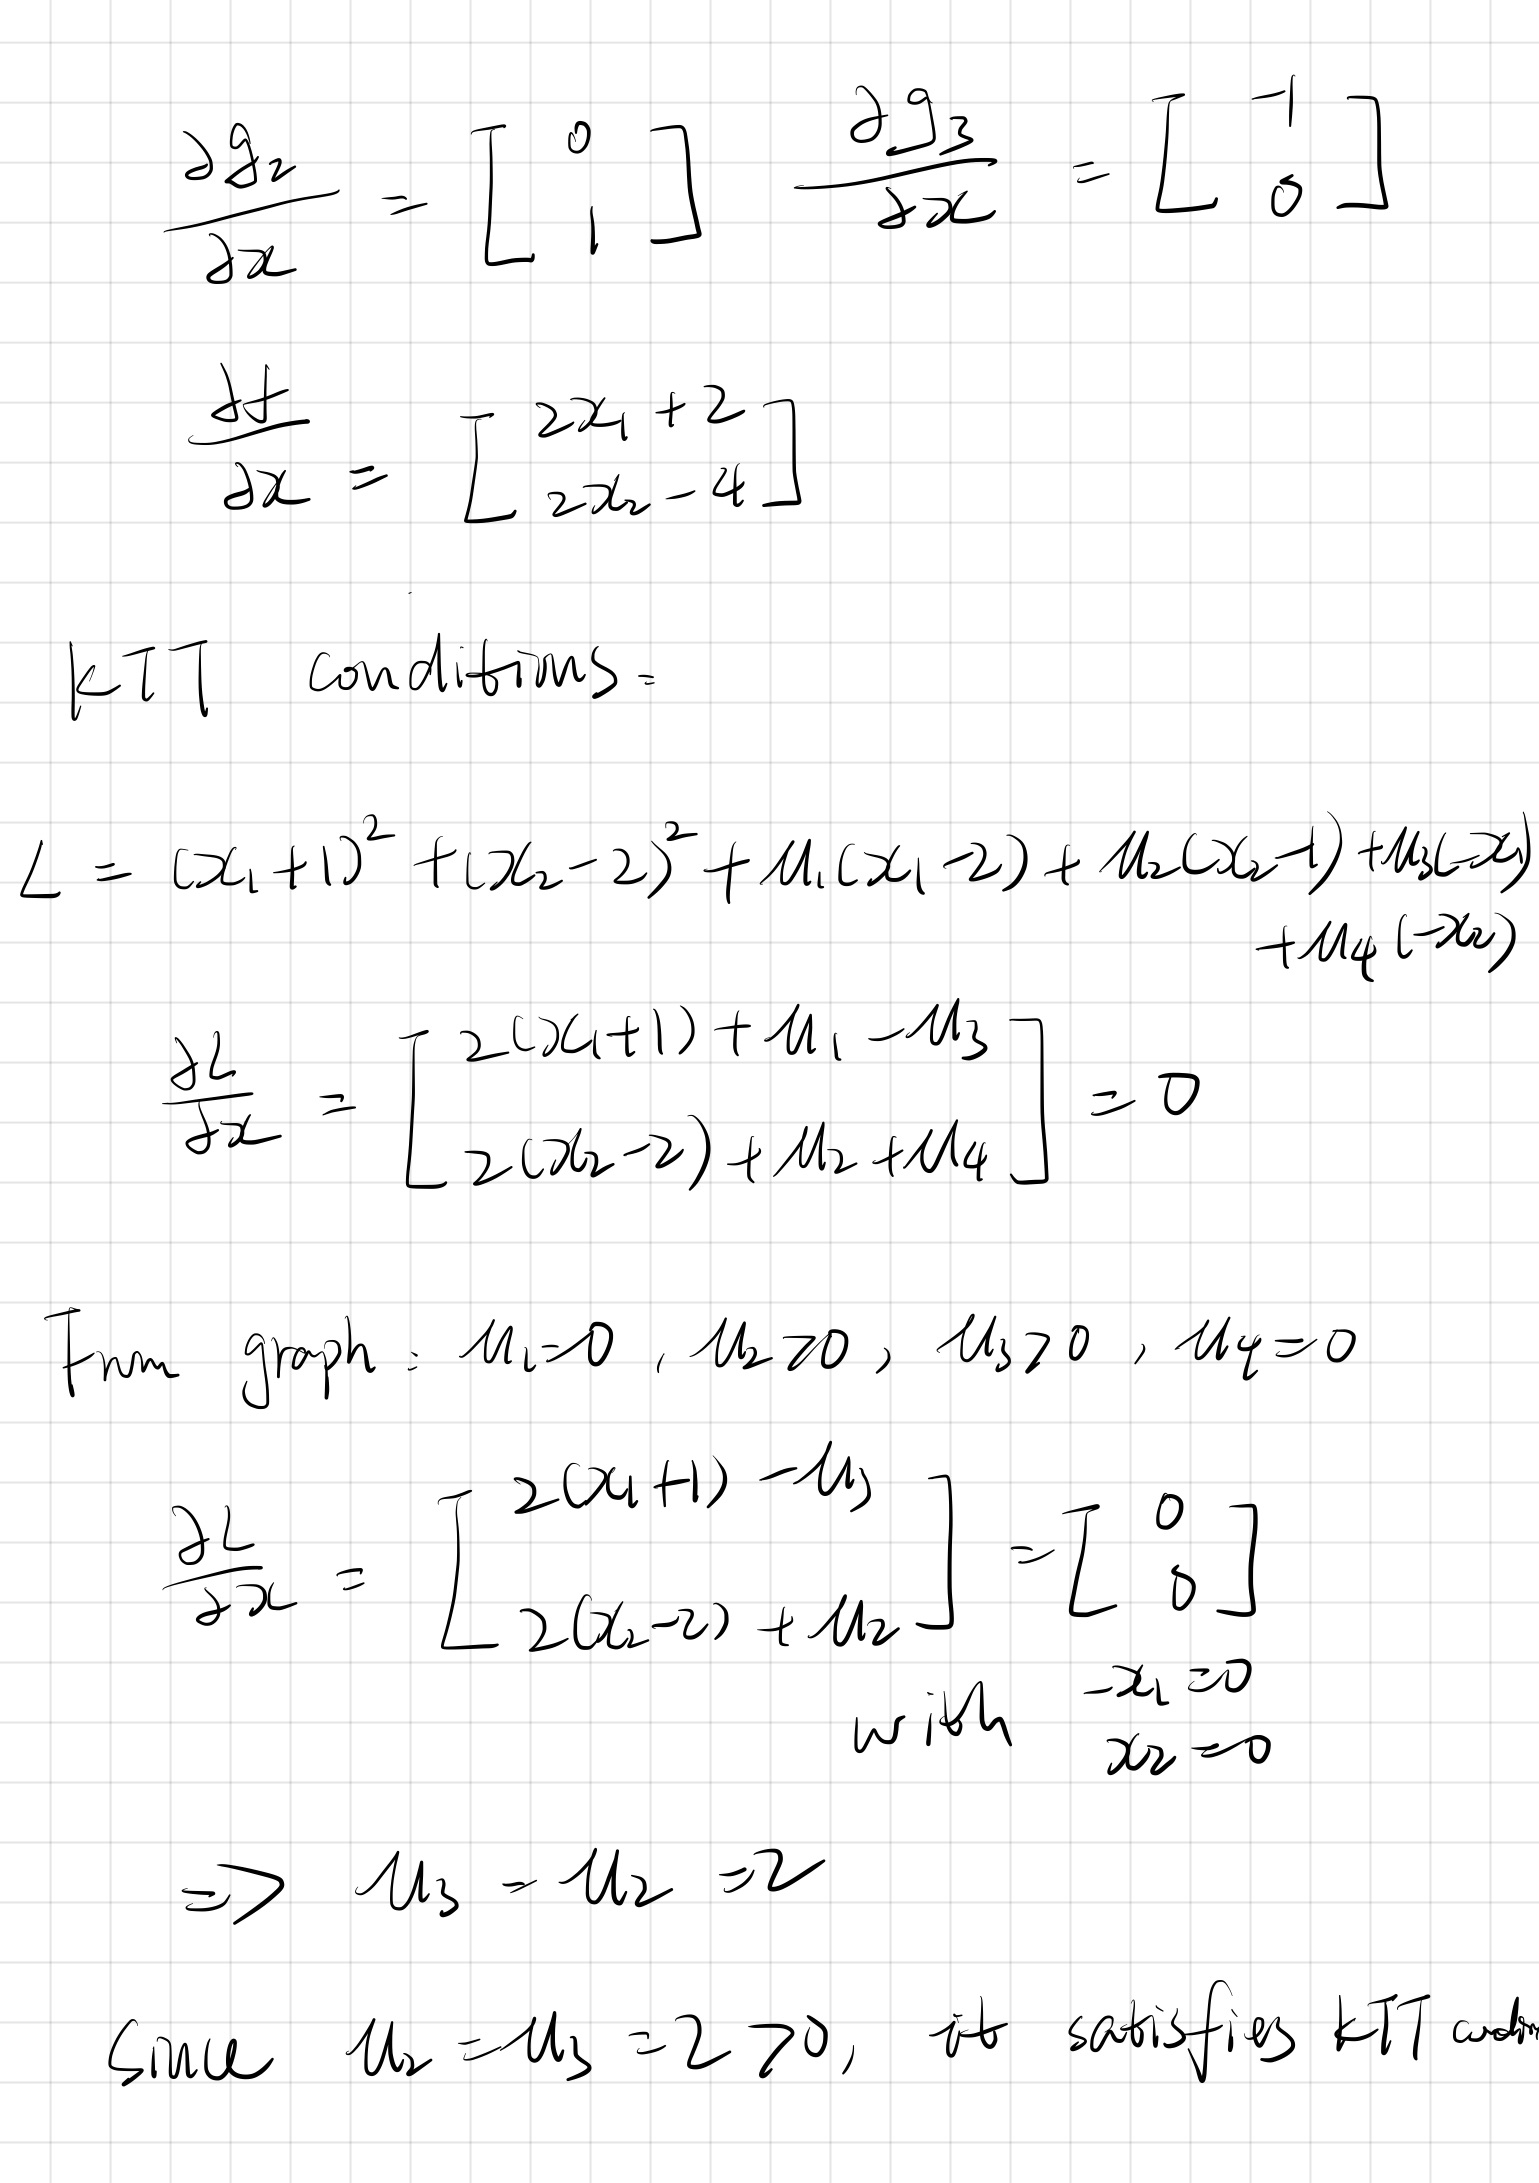 ∂g₂/∂x = [0 1] ∂g₃/∂x = [-1 0]
∂f/∂x = [2x₁+2 2x₂-4]
KTT conditions:
L = (x₁+1)² + (x₂-2)² + μ₁(x₁-2) + μ₂(x₂-1) + μ₃(-x₁)
+ μ₄(-x₂)
∂L/∂x = [2(x₁+1) + μ₁ - μ₃ 2(x₂-2) + μ₂ + μ₄] = 0
From graph: μ₁=0, μ₂>0, μ₃>0, μ₄=0
∂L/∂x = [2(x₁+1) - μ₃ 2(x₂-2) + μ₂] = [0 0]
with -x₁=0
x₂=0
=> μ₃ = μ₂ = 2
Since μ₂ = μ₃ = 2 >0, it satisfies KTT